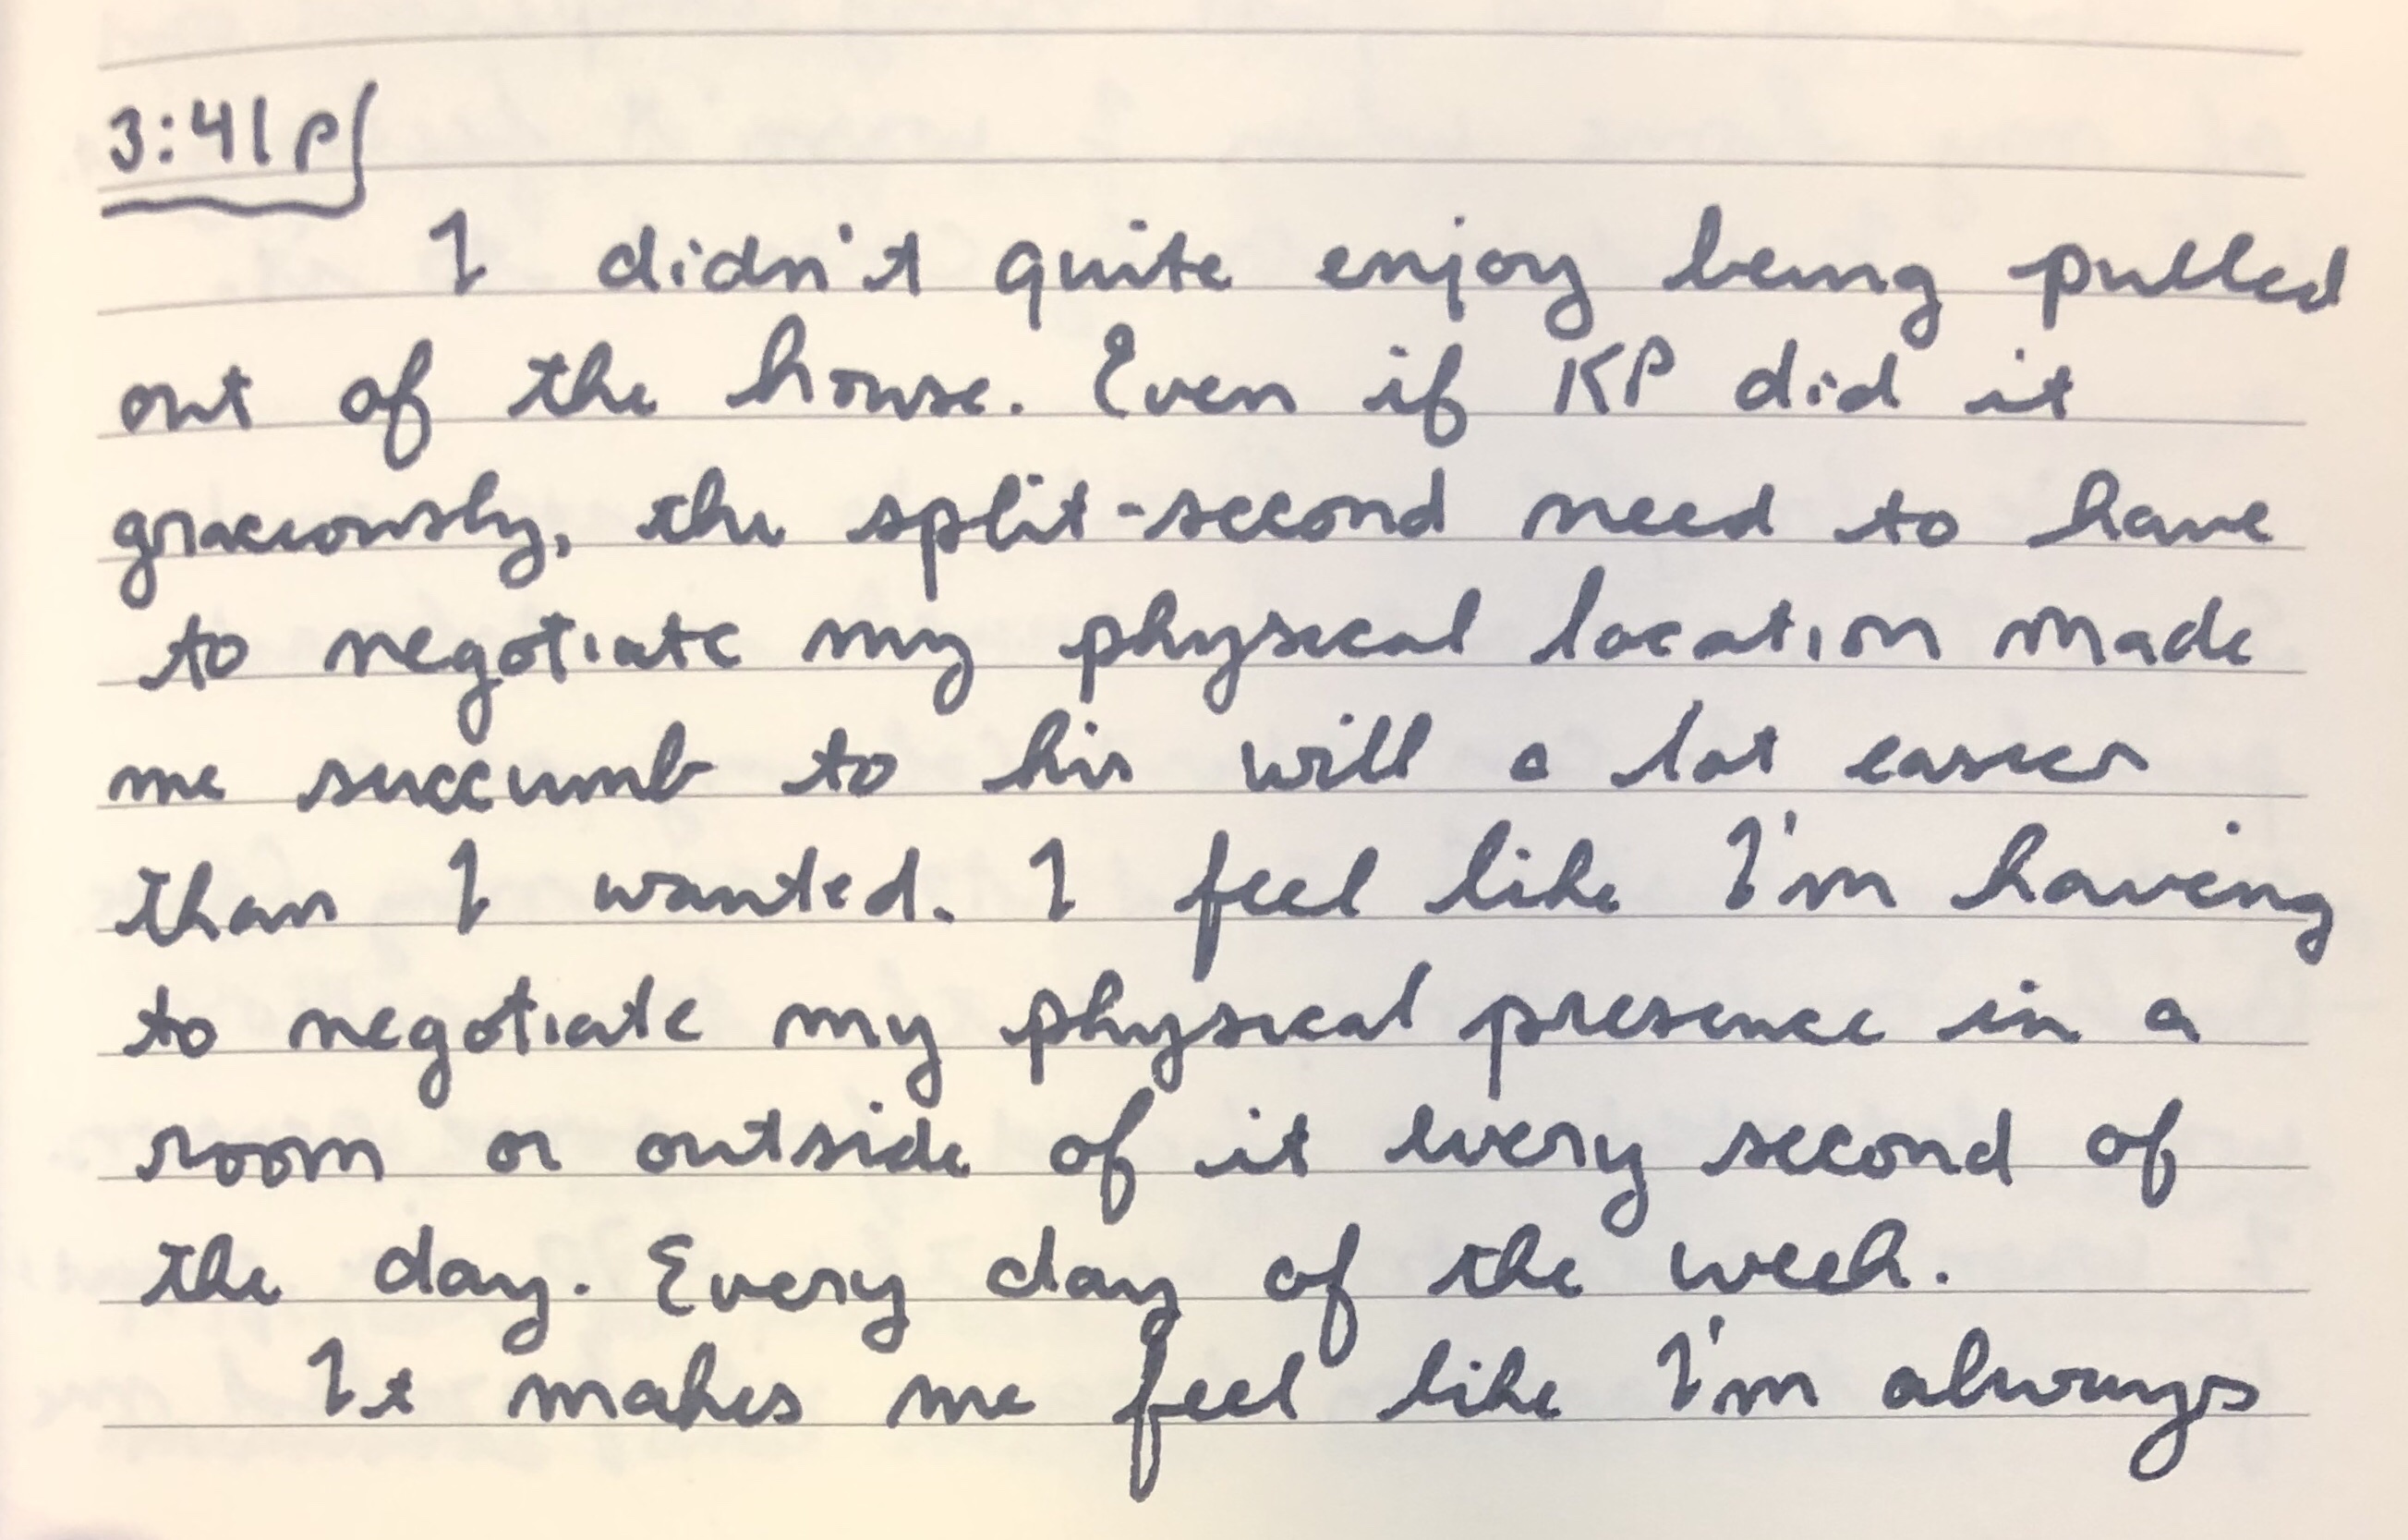 3:41p
I didn't quite enjoy being pulled
out of the house. Even if KP did it
graciously, the split-second need to have
to negotiate my physical location made
me succumb to his will a lot easier
than I wanted. I feel like I'm having
to negotiate my physical presence in a
room or outside of it every second of
the day. Every day of the week.
It makes me feel like I'm always